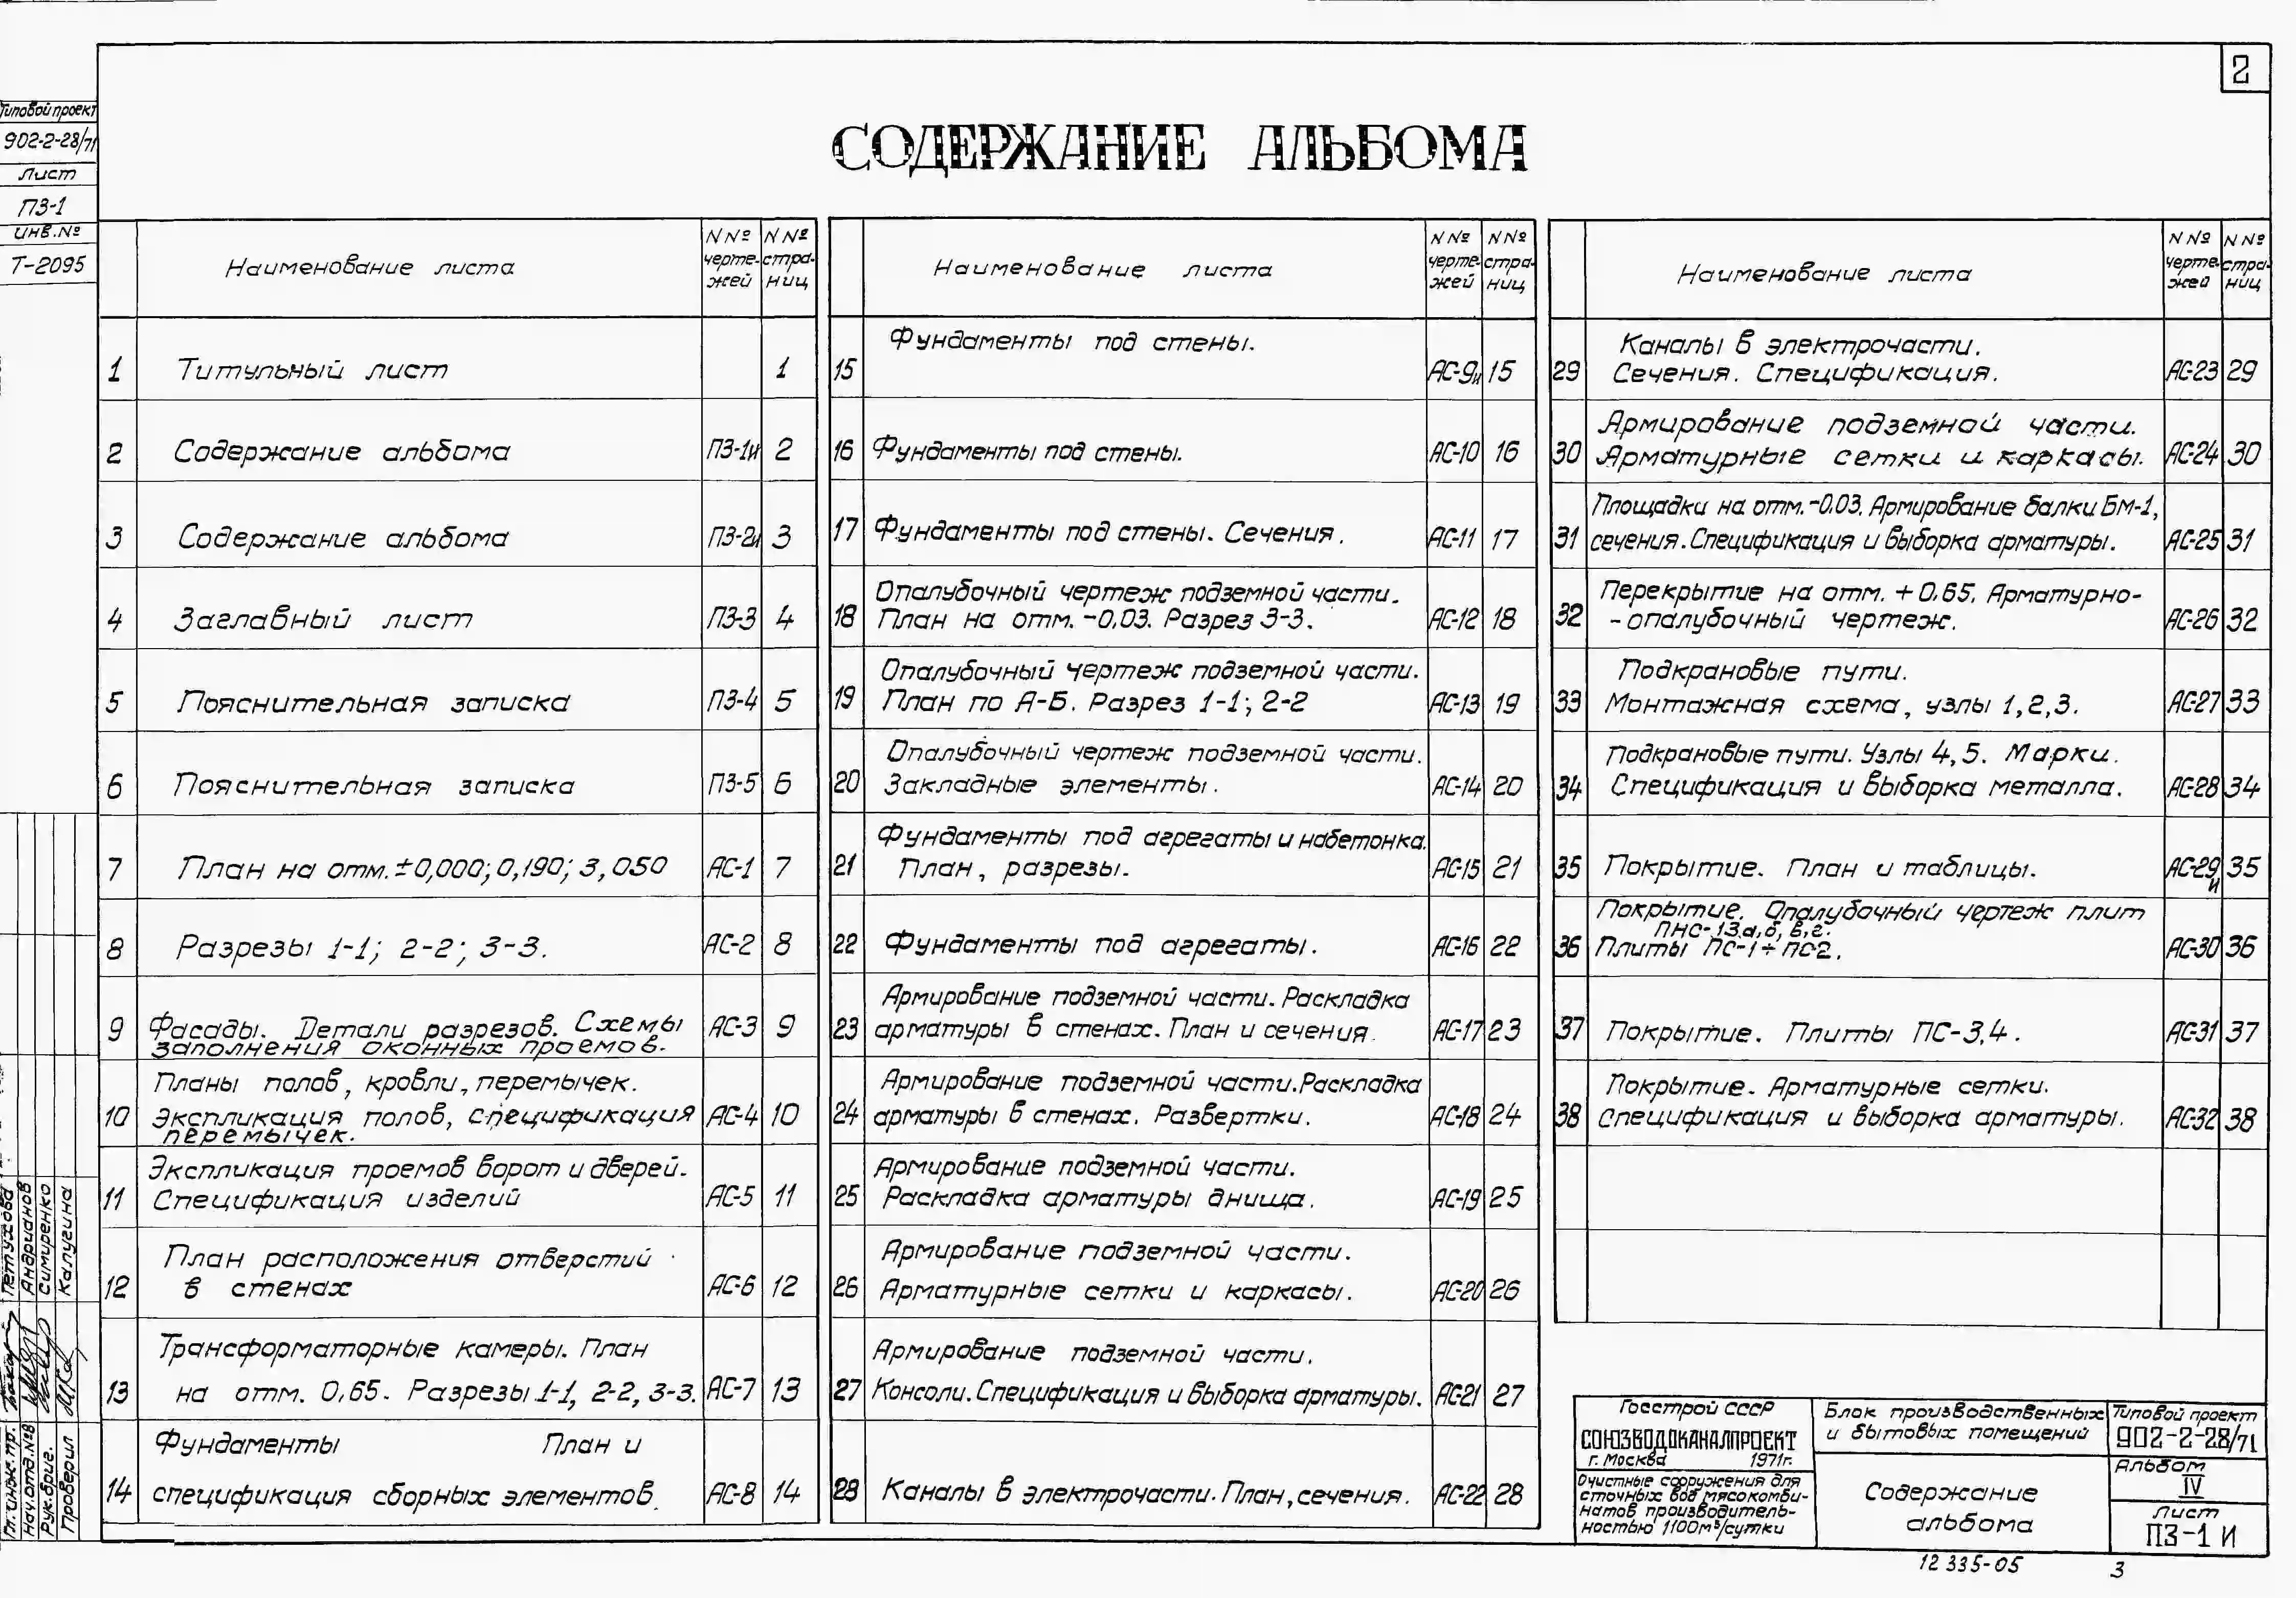 2
Типовой проект
902-2-28/71
Лист
ПЗ-1
Инв.№
Т-2095
СОДЕРЖАНИЕ АЛЬБОМА
Наименование листа
N N° чертежей
N N° страниц
1 Титульный лист 1
2 Содержание альбома ПЗ-1и 2
3 Содержание альбома ПЗ-2и 3
4 Заглавный лист ПЗ-3 4
5 Пояснительная записка ПЗ-4 5
6 Пояснительная записка ПЗ-5 6
7 План на отм.±0,000; 0,190; 3,050 АС-1 7
8 Разрезы 1-1; 2-2; 3-3. АС-2 8
9 Фасады. Детали разрезов. Схемы
заполнения оконных проемов. АС-3 9
Планы полов, кровли, перемычек.
10 Экспликация полов, спецификация АС-4 10
перемычек.
Экспликация проемов ворот и дверей.
11 Спецификация изделий АС-5 11
План расположения отверстий
12 в стенах АС-6 12
Трансформаторные камеры. План
13 на отм. 0,65. Разрезы 1-1, 2-2, 3-3. АС-7 13
Фундаменты План и
14 спецификация сборных элементов. АС-8 14
Наименование листа
N N° чертежей
N N° страниц
Фундаменты под стены.
15 АС-9и 15
16 Фундаменты под стены. АС-10 16
17 Фундаменты под стены. Сечения. АС-11 17
Опалубочный чертеж подземной части.
18 План на отм. -0,03. Разрез 3-3. АС-12 18
Опалубочный чертеж подземной части.
19 План по А-Б. Разрез 1-1; 2-2 АС-13 19
Опалубочный чертеж подземной части.
20 Закладные элементы. АС-14 20
Фундаменты под агрегаты и набетонка.
21 План, разрезы. АС-15 21
22 Фундаменты под агрегаты. АС-16 22
Армирование подземной части. Раскладка
23 арматуры в стенах. План и сечения. АС-17 23
Армирование подземной части. Раскладка
24 арматуры в стенах. Развертки. АС-18 24
Армирование подземной части.
25 Раскладка арматуры днища. АС-19 25
Армирование подземной части.
26 Арматурные сетки и каркасы. АС-20 26
Армирование подземной части.
27 Консоли. Спецификация и выборка арматуры. АС-21 27
28 Каналы в электрочасти. План, сечения. АС-22 28
Наименование листа
N N° чертежей
N N° страниц
Каналы в электрочасти.
29 Сечения. Спецификация. АС-23 29
Армирование подземной части.
30 Арматурные сетки и каркасы. АС-24 30
Площадки на отм. -0.03. Армирование балки БМ-1,
31 сечения. Спецификация и выборка арматуры. АС-25 31
Перекрытие на отм. +0,65. Арматурно-
32 -опалубочный чертеж. АС-26 32
Подкрановые пути.
33 Монтажная схема, узлы 1,2,3. АС-27 33
Подкрановые пути. Узлы 4,5. Марки.
34 Спецификация и выборка металла. АС-28 34
35 Покрытие. План и таблицы. АС-29и 35
Покрытие. Опалубочный чертеж плит
ПНС-13а,б,в,г.
36 Плиты ПС-1÷ПС-2. АС-30 36
37 Покрытие. Плиты ПС-3,4. АС-31 37
Покрытие. Арматурные сетки.
38 Спецификация и выборка арматуры. АС-32 38
Петухова
Андрианов
Симиренко
Калугина
Гл. инж. пр.
Нач.отд.№8
Рук.бриг.
Проверил
Госстрой СССР
СОЮЗВОДОКАНАЛПРОЕКТ
г. Москва 1971г.
Очистные сооружения для
сточных вод мясокомби-
натов производитель-
ностью 1100м³/сутки
Блок производственных
и бытовых помещений
Содержание
альбома
Типовой проект
902-2-28/71
Альбом
IV
Лист
ПЗ-1 И
12 335-05 3